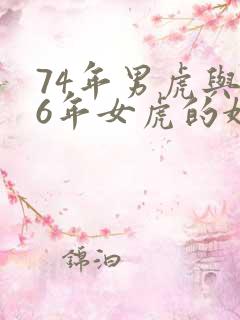 74年男虎與
6年女虎的
錦泊